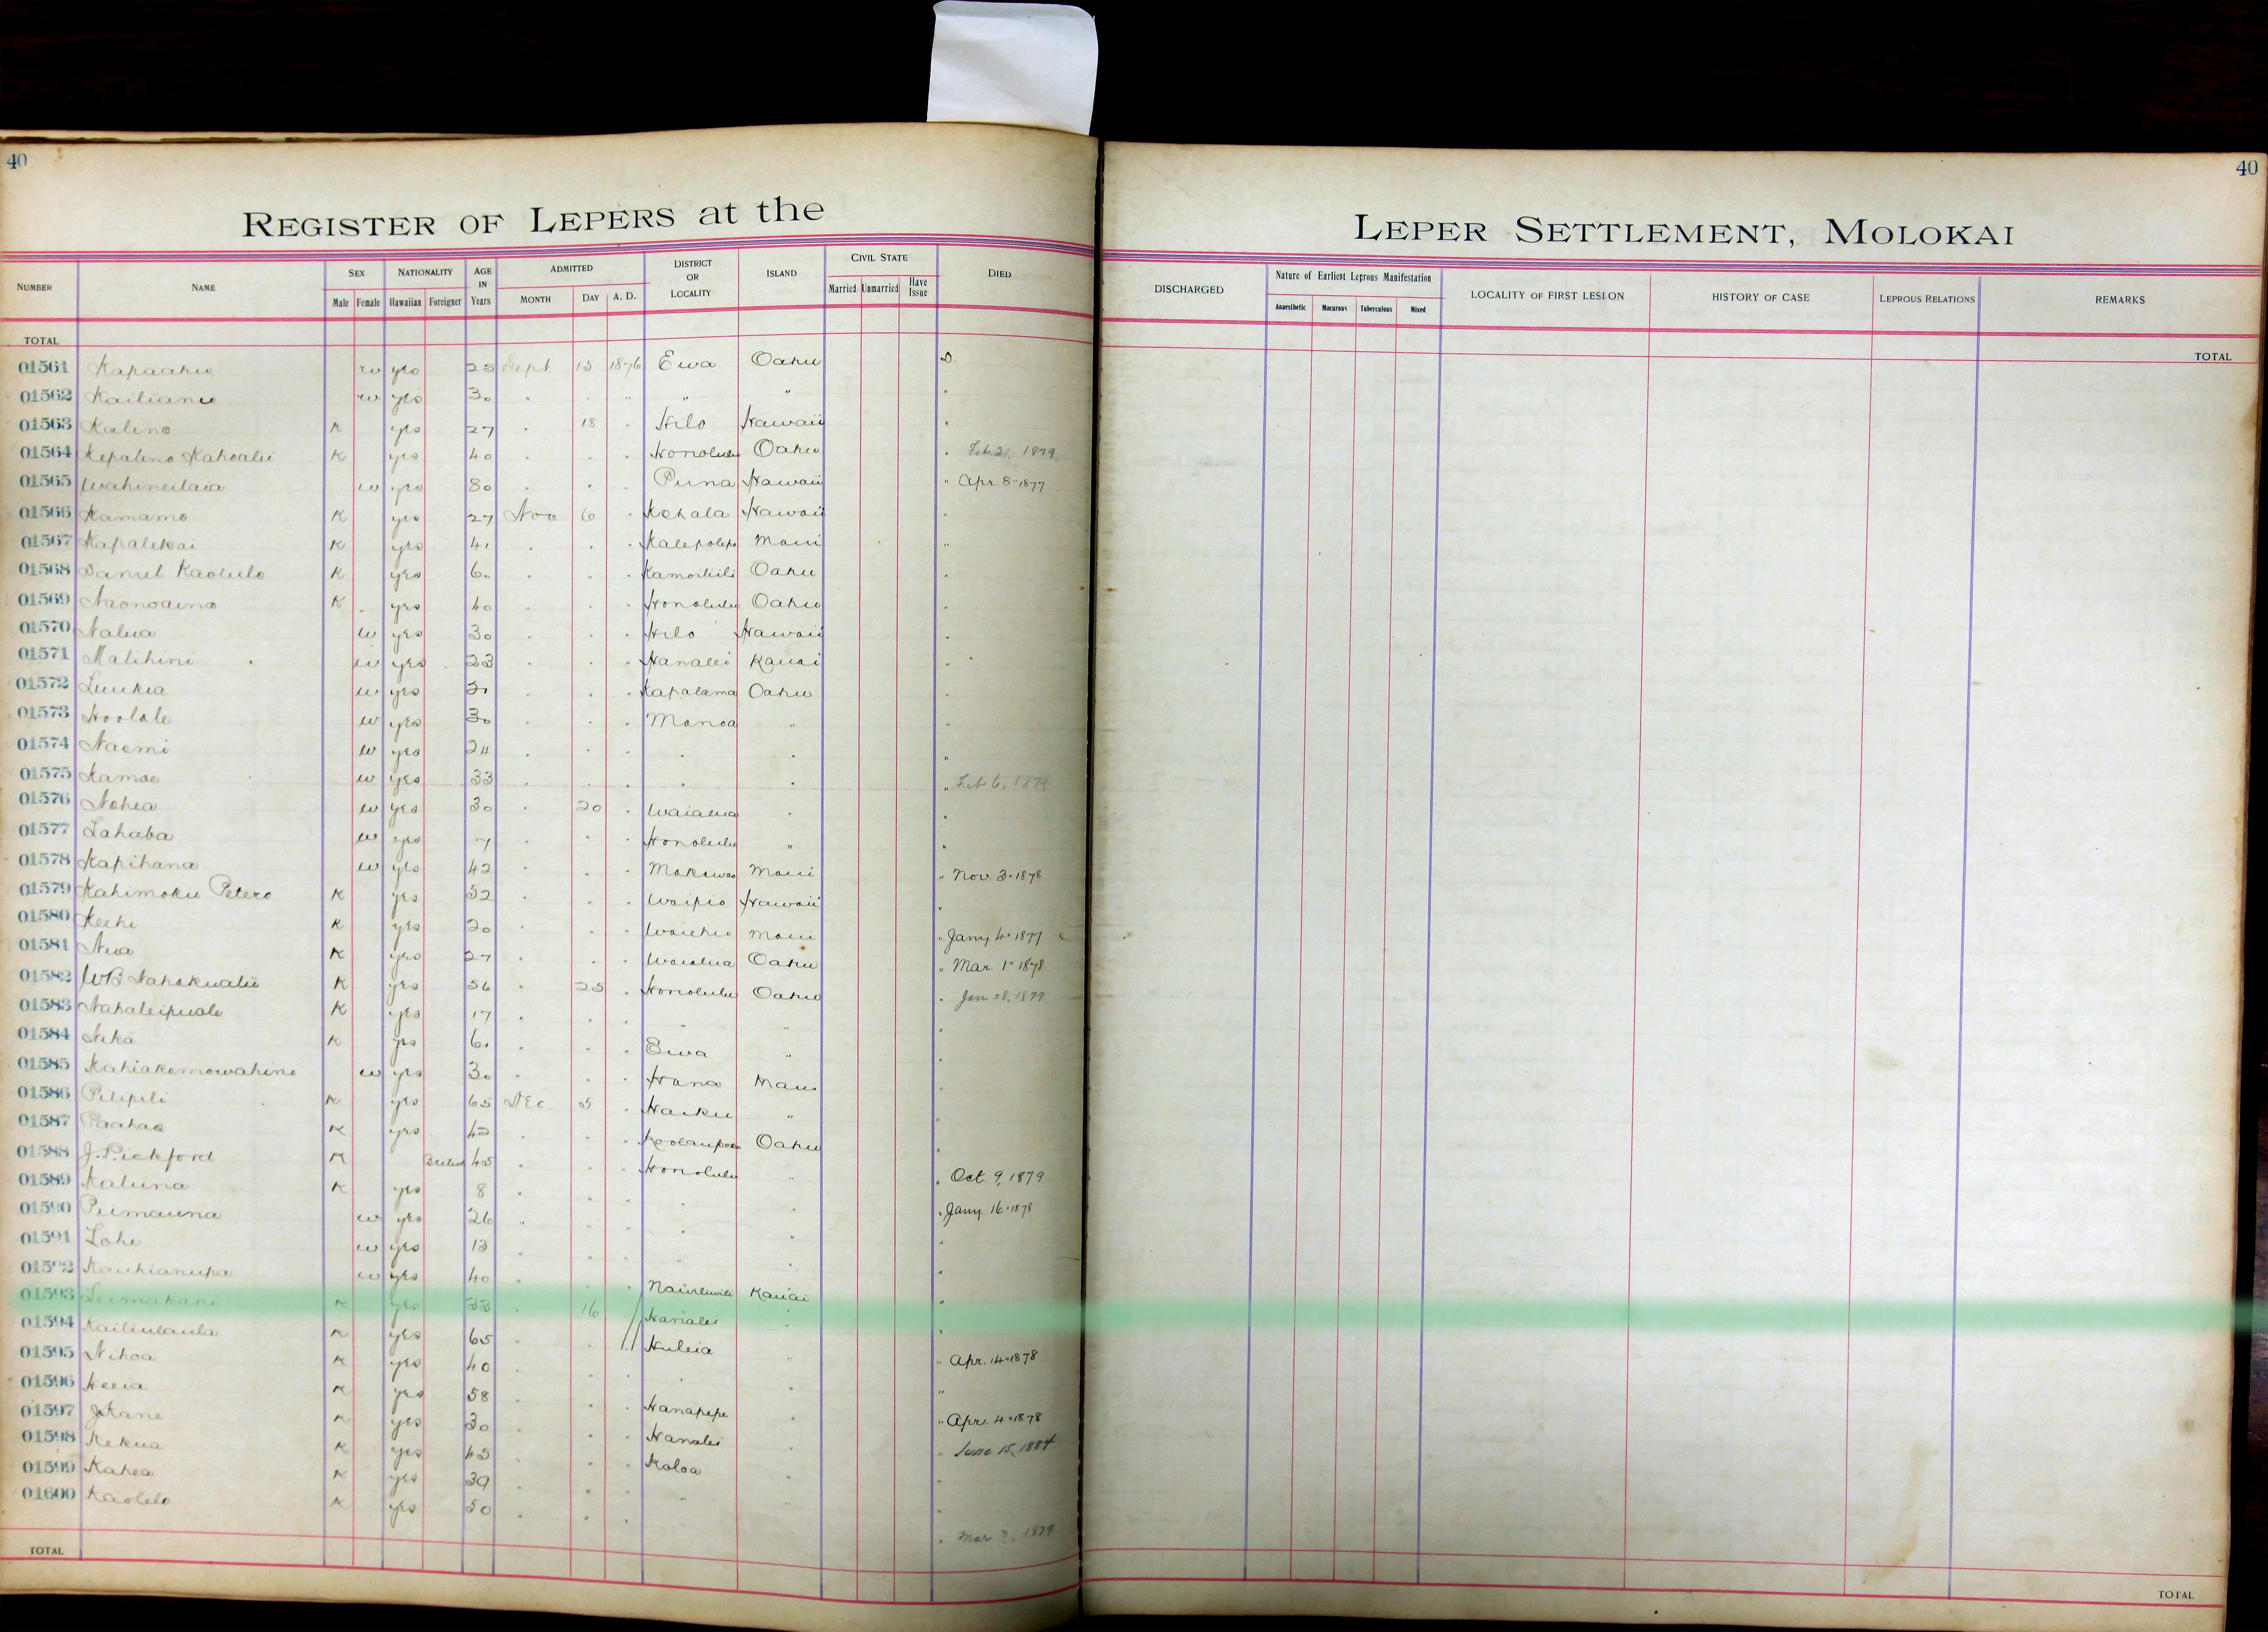 40
REGISTER OF LEPERS at the
NUMBER NAME SEX Male Female NATIONALITY Hawaiian Foreigner AGE IN Years ADMITTED MONTH DAY A. D. DISTRICT OR LOCALITY ISLAND CIVIL STATE Married Unmarried Have Issue DIED
TOTAL
01561 Kapaahu w yes 25 Sept 15 1876 Ewa Oahu D.
01562 Kailianu w yes 30 " " " " " "
01563 Kalino K yes 27 " 18 " Hilo Hawaii "
01564 Kepalino Kahoalii K yes 40 " " " Honolulu Oahu " Feb 21, 1879
01565 Wahineilaia w yes 80 " " " Puna Hawaii " Apr. 8 - 1877
01566 Kamamo K yes 27 Nov 6 " Kohala Hawaii "
01567 Kapalekai K yes 41 " " " Kalepolepo Maui "
01568 Daniel Kaolulo K yes 60 " " " Kamoiliili Oahu "
01569 Naonoaina K yes 40 " " " Honolulu Oahu "
01570 Nalua w yes 30 " " " Hilo Hawaii "
01571 Malihini w yes 23 " " " Hanalei Kauai "
01572 Luukia w yes 21 " " " Kapalama Oahu "
01573 Hoolale w yes 30 " " " Manoa " "
01574 Naomi w yes 24 " " " " " "
01575 Kamae w yes 33 " " " " " " Feb 6, 1879
01576 Nohea w yes 30 " 20 " Waialua " "
01577 Lahaba w yes 7 " " " Honolulu " "
01578 Kapihana w yes 42 " " " Makawao Maui " Nov. 3 - 1878
01579 Kahimoku Petero K yes 52 " " " Waipio Hawaii "
01580 Keehi K yes 20 " " " Waiehu Maui " Jany 4 - 1877 "
01581 Niva K yes 27 " " " Waialua Oahu " Mar. 1 - 1878
01582 WB Nahokualii K yes 56 " 25 " Honolulu Oahu " Jan 28, 1879
01583 Nahaleipuole K yes 17 " " " " " "
01584 Nika K yes 61 " " " Ewa " "
01585 Kahiakemowahine w yes 30 " " " Hana Maui "
01586 Pilipili K yes 65 Dec 5 " Haiku " "
01587 Paahao K yes 42 " " " Koolaupoko Oahu "
01588 J. Pickford K British 45 " " " Honolulu " " Oct. 9, 1879
01589 Kaluna K yes 8 " " " " " " Jany 16 - 1878
01590 Puimauna w yes 26 " " " " " "
01591 Lohe w yes 13 " " " " " "
01592 Kauhianupa w yes 40 " " " Nawiliwili Kauai "
01593 Luimakani K yes 33 " 16 " Hanalei " "
01594 Kailiulaula K yes 65 " " " Huleia " " Apr. 14 - 1878
01595 Nihoa K yes 40 " " " " " "
01596 Heeia K yes 58 " " " Hanapepe " " Apr. 4 - 1878
01597 J Kane K yes 30 " " " Hanalei " " June 15, 1884
01598 Kekua K yes 45 " " " Koloa " "
01599 Kahea K yes 39 " " " " " "
01600 Kaolelo K yes 50 " " " " Mar 3, 1879
TOTAL
40
LEPER SETTLEMENT, MOLOKAI
DISCHARGED Nature of Earliest Leprous Manifestation Anaesthetic Macurous Tuberculous Mixed LOCALITY OF FIRST LESION HISTORY OF CASE LEPROUS RELATIONS REMARKS
TOTAL
TOTAL